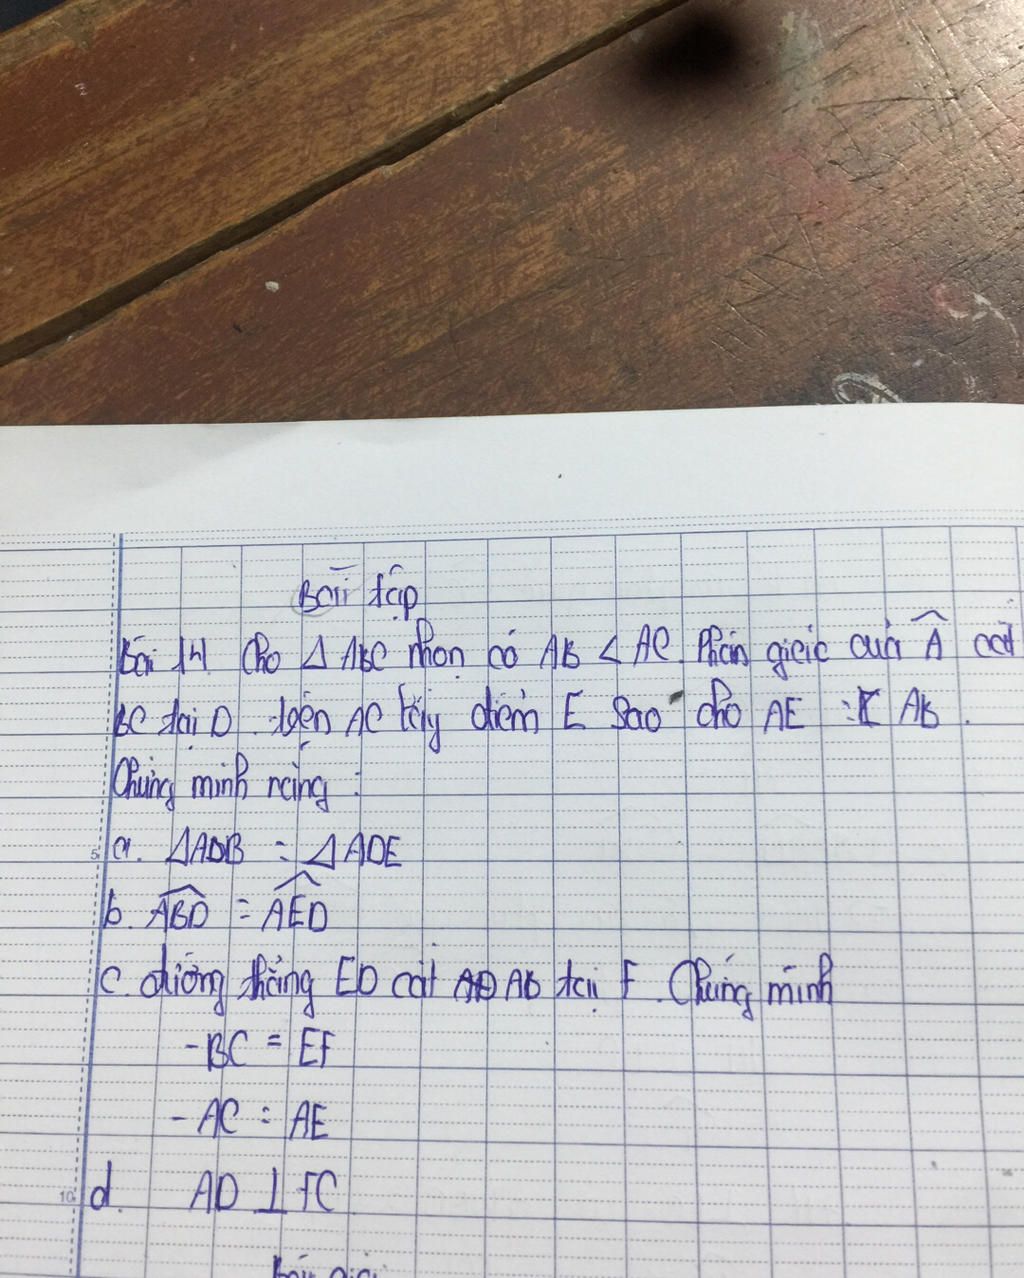 Bài tập
Bài 14 Cho Δ ABC nhọn có AB < AC. Phân giác của Â cắt
BC tại D. trên AC lấy điểm E sao cho AE = AB.
Chứng minh rằng :
a. ΔADB = ΔADE
b. ABD̂ = AED̂
c. đường thẳng ED cắt AB tại F. Chứng minh
- BC = EF
- AC = AE
d. AD ⊥ FC